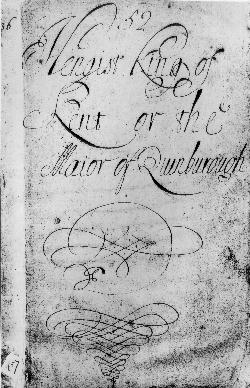 52
36
Hengist King of
Kent or the
Maior of Quinborough